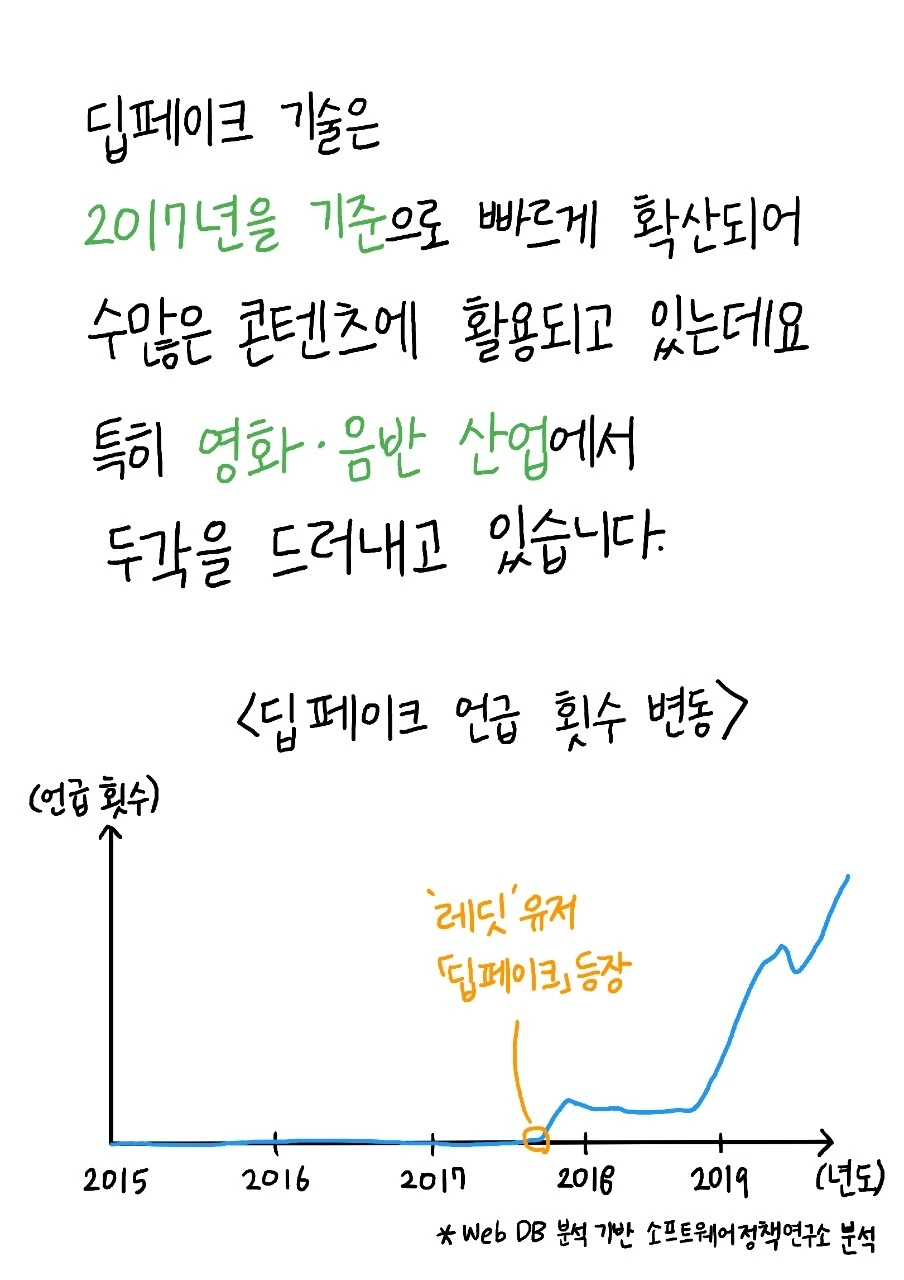 딥페이크 기술은
2017년을 기준으로 빠르게 확산되어
수많은 콘텐츠에 활용되고 있는데요
특히 영화·음반 산업에서
두각을 드러내고 있습니다.
<딥페이크 언급 횟수 변동>
(언급 횟수)
'레딧' 유저
「딥페이크」 등장
2015 2016 2017 2018 2019 (년도)
* Web DB 분석 기반 소프트웨어정책연구소 분석